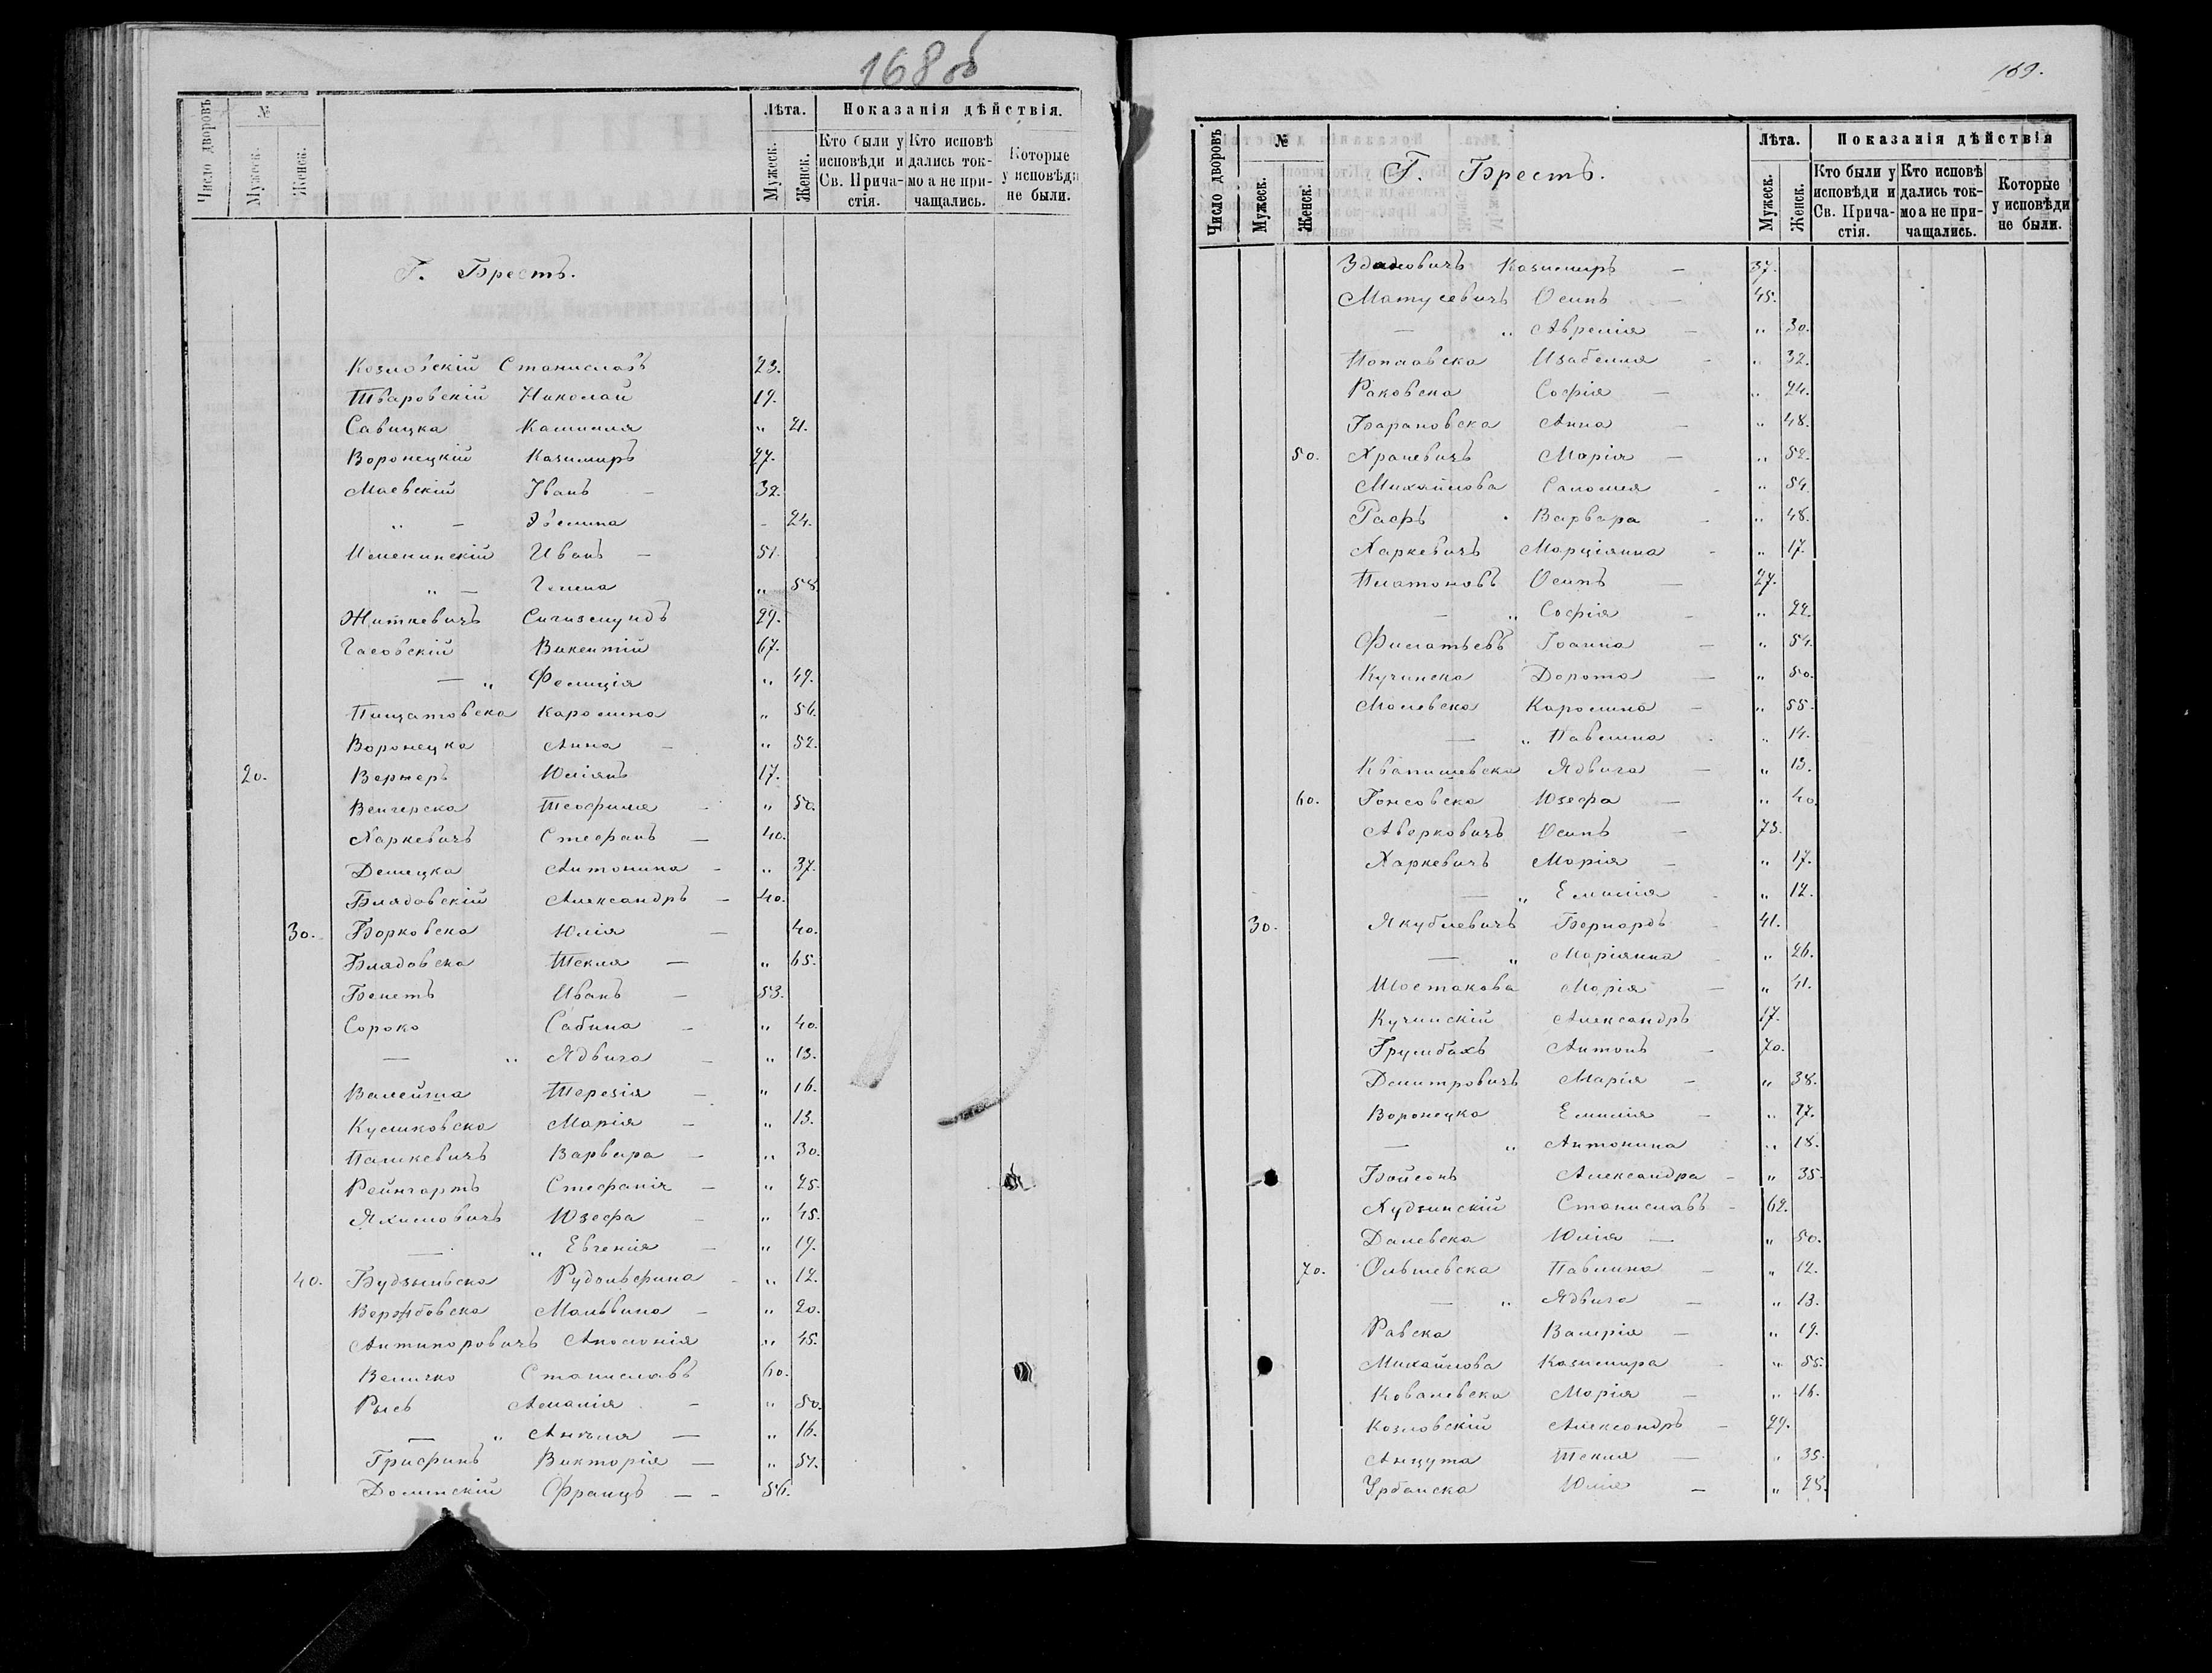 168 об
Число дворовъ
№
Мужеск.
Женск.
Лѣта.
Мужеск.
Женск.
Показанія дѣйствія.
Кто были у исповѣди и Св. Прича-стія.
Кто исповѣ дались ток-мо а не при-чащались.
Которые у исповѣди не были.
Г. Брестъ.
Козловскій Станиславъ 23.
Тваровскій Николай 19.
Савицка Камилля „ 21.
Воронецкій Казимиръ 27.
Маевскій Іванъ — 32.
„ — Эвелина - 24.
Именинскій Иванъ — 51.
„ — Гелена „ 58.
Житкевичъ Сигизмундъ 29.
Гасовскій Викентій 67.
— „ Фелиція „ 49.
Пищатовска Каролина „ 56.
Воронецка Анна — „ 52.
20. Вернеръ Юліянъ 17.
Венгерска Теофиля — „ 50.
Харкевичъ Стефанъ — 40.
Демецка Антонина — „ 37.
Блядовскій Александръ — 40.
30. Борковска Юлія — 40.
Блядовска Текля — „ 65.
Бенетъ Иванъ — 53.
Сороко Сабина — „ 40.
— „ Ядвига — „ 13.
Валейша Терезія — „ 16.
Кусмковска Марія — „ 13.
Пашкевичъ Варвара — „ 30.
Рейнгартъ Стефанія — „ 25.
Яхимовичъ Юзефа — „ 45.
— „ Евгенія — „ 19.
40. Будзинвска Рудольфина — „ 12.
Вержбовска Мальвина — „ 20.
Антипоровичъ Аполонія „ 45.
Величко Станиславъ 60.
Рысь Амалія — „ 50.
— „ Анеля — „ 16.
Грифинъ Викторія — „ 51.
Долинскій Францъ — - 56.
169.
Число дворовъ
№
Мужеск.
Женск.
Г. Брестъ.
Лѣта.
Мужеск.
Женск.
Показанія дѣйствія
Кто были у исповѣди и Св. Прича-стія.
Кто исповѣ дались ток-мо а не при-чащались.
Которые у исповѣди не были.
Здановичъ Казимиръ — 37.
Матусевичъ Осипъ — 45.
— „ Аврелія — „ 30.
Поплавска Изабелля — „ 32.
Раковска Софія — „ 24.
Барановска Анна — „ 48.
50. Храневичъ Марія — „ 52.
Михайлова Саломея - „ 54.
Рафъ Варвара - „ 48.
Харкевичъ Марціянна - „ 17.
Платоновъ Осипъ — 27.
— „ Софія - „ 22.
Филатьевъ Іоанна — „ 54.
Кучинска Дорота — „ 50.
Малевска Каролина — „ 55.
— „ Павлина . „ 14.
Квапишевска Ядвига — „ 13.
60. Гонсовска Юзефа — „ 40.
Аворковичъ Осипъ — 73.
Харкевичъ Марія — „ 17.
— „ Емилія - „ 12.
30. Якублевичъ Бернардъ - 41.
— „ Маріянна - „ 26.
Шостакова Марія — „ 41.
Кучинскій Александръ 17.
Грумбахъ Антонъ — 70.
Демитровичъ Марія — „ 38.
Воронецка Емилія — „ 27.
— „ Антонина „ 18.
Бойсонъ Александра — „ 35.
Худзинскій Станиславъ - 62.
Далевска Юлія — „ 50.
70. Ольшевска Павлина — „ 12.
— „ Ядвига — „ 13.
Равска Валерія — „ 19.
Михайлова Казимира - „ 55.
Ковалевска Марія — „ 16.
Козловскій Александръ — 29.
Анцута Текля — „ 35.
Урбанска Юлія — „ 25.